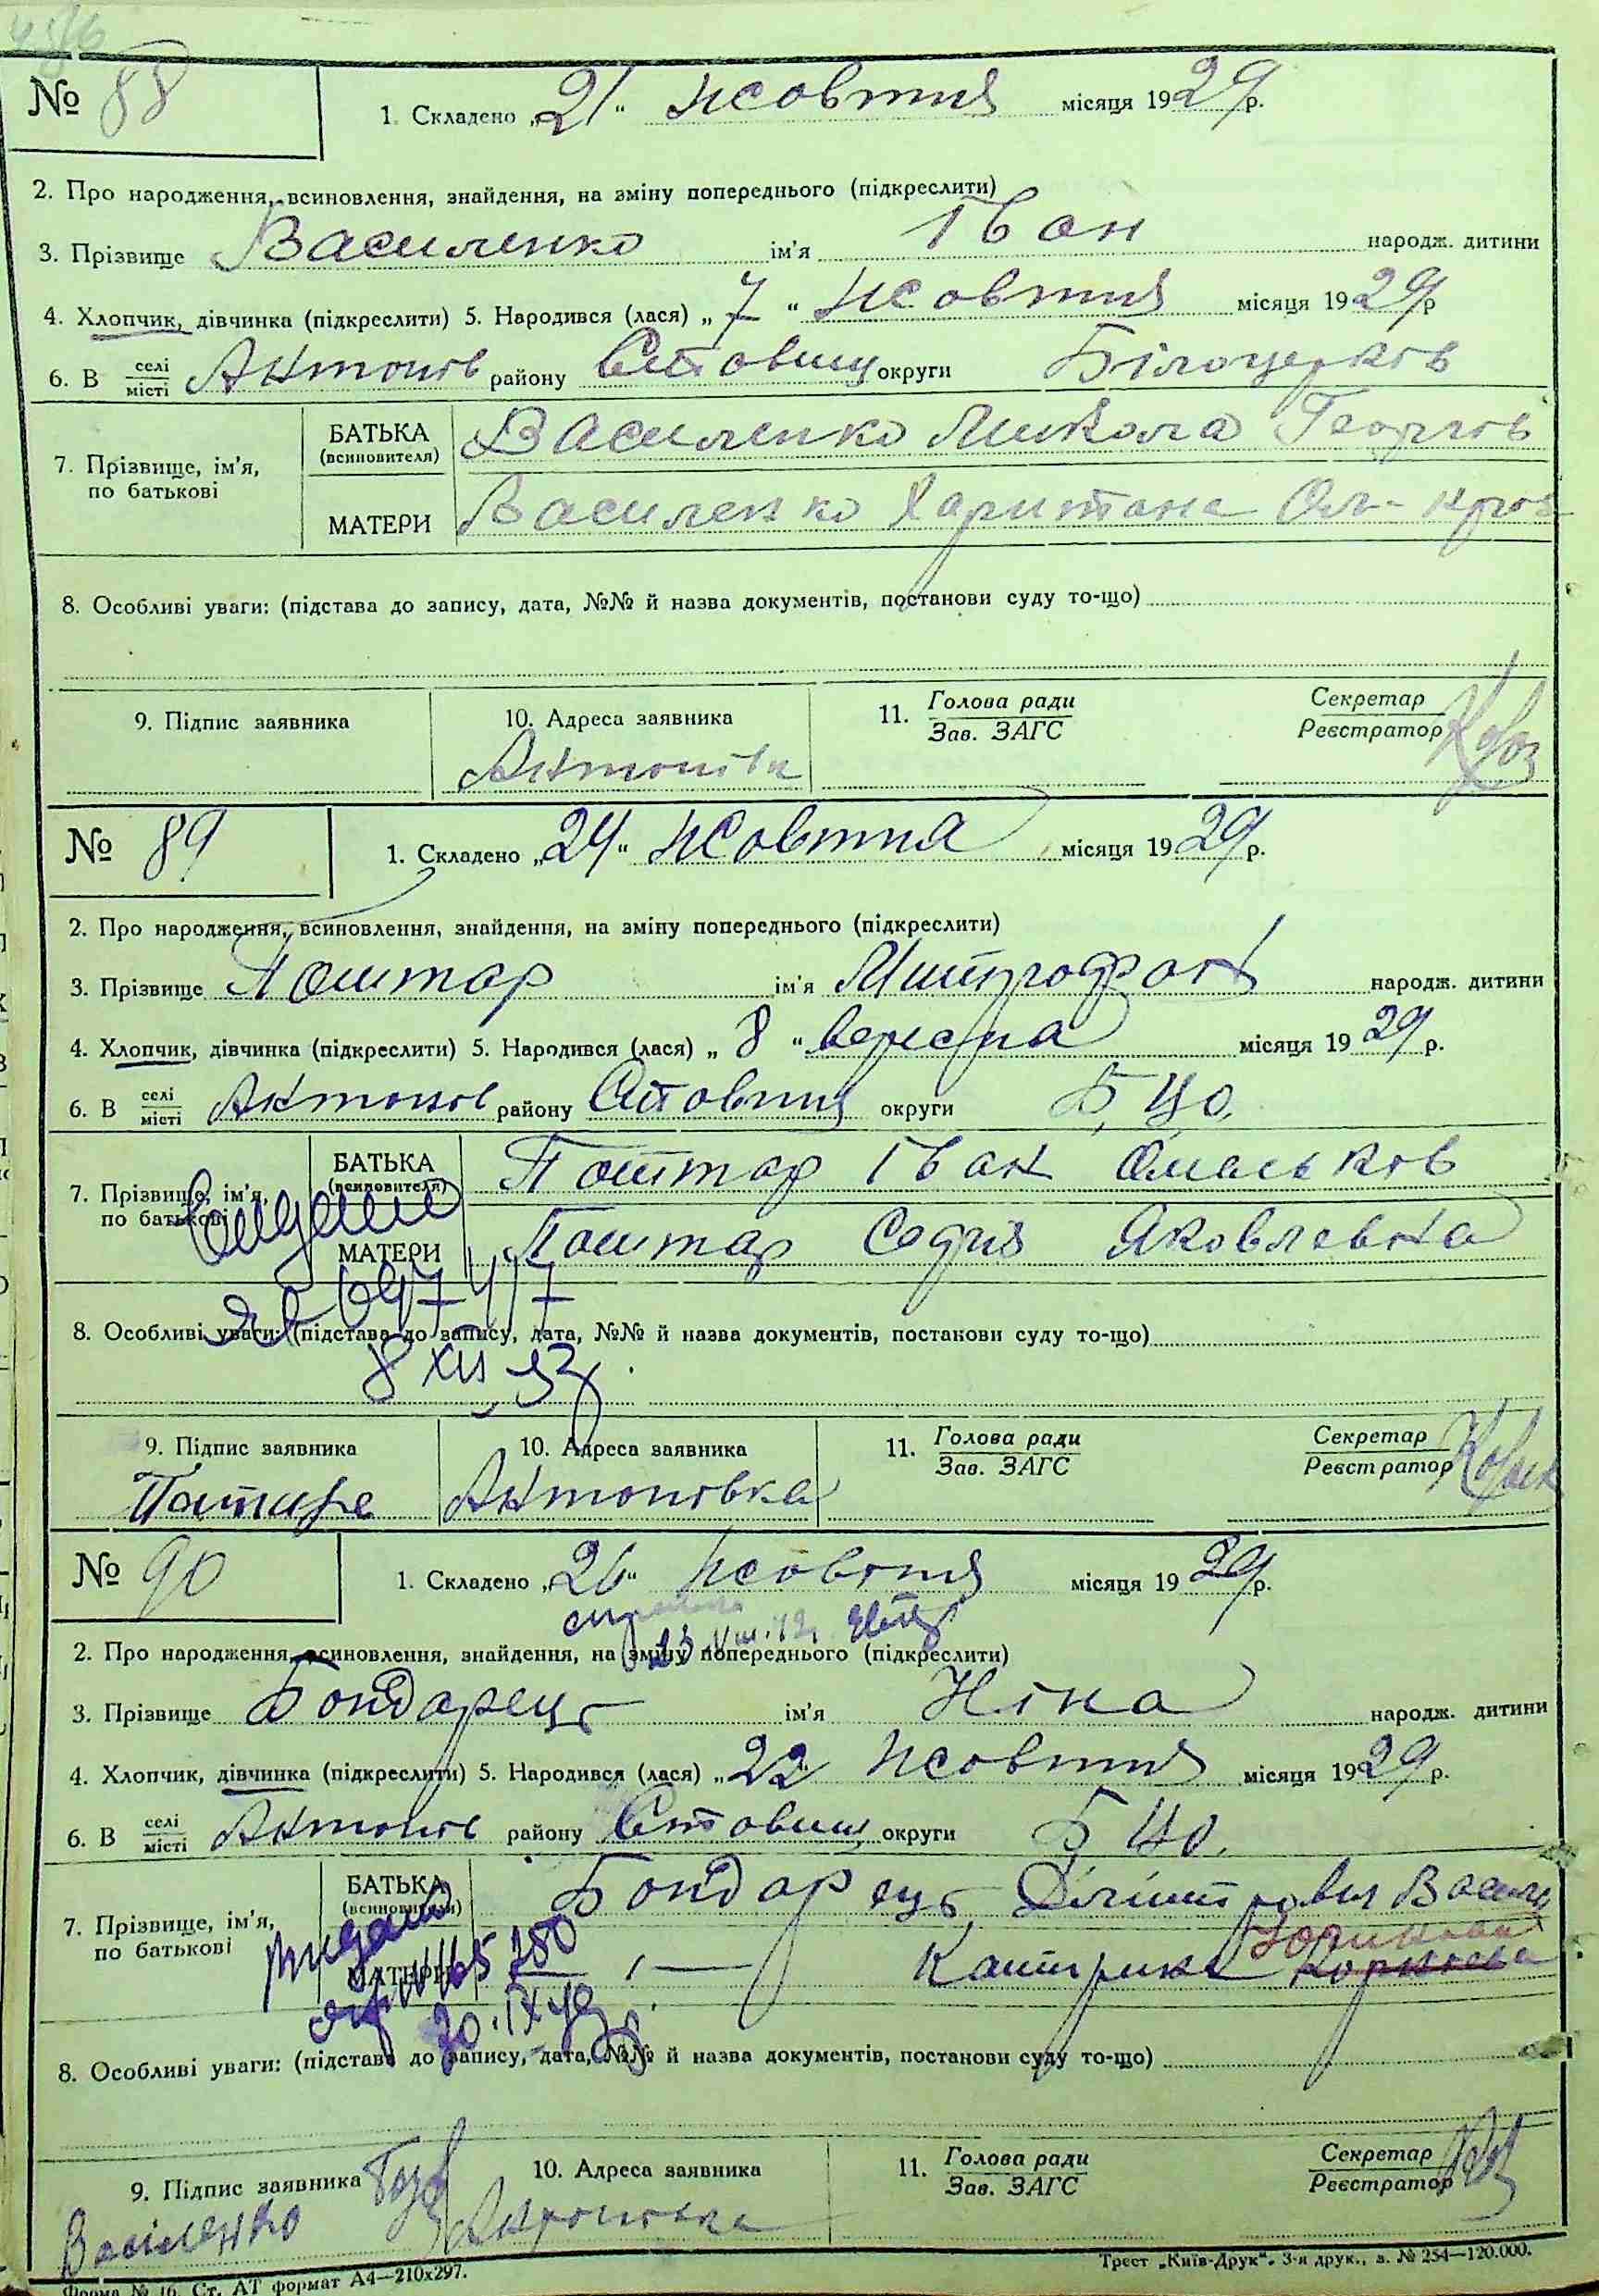 № 88
1. Складено „21“ жовтня місяця 1929 р.
2. Про народження, всиновлення, знайдення, на зміну попереднього (підкреслити)
3. Прізвище Василенко ім'я Іван народж. дитини
4. Хлопчик, дівчинка (підкреслити) 5. Народився (лася) „7“ жовтня місяця 1929 р
6. В селі/місті Антонів району Ставищ округи Білоцерків
7. Прізвище, ім'я, по батькові
БАТЬКА (всиновителя) Василенко Микола Георгов
МАТЕРИ Василенко Харитана
8. Особливі уваги: (підстава до запису, дата, №№ й назва документів, постанови суду то-що)
9. Підпис заявника
10. Адреса заявника
11. Голова ради / Зав. ЗАГС
Секретар / Реєстратор
Антонівк
№ 89
1. Складено „24“ жовтня місяця 1929 р.
2. Про народження, всиновлення, знайдення, на зміну попереднього (підкреслити)
3. Прізвище Поштар ім'я Митрофан народж. дитини
4. Хлопчик, дівчинка (підкреслити) 5. Народився (лася) „8“ вересня місяця 1929 р.
6. В селі/місті Антонов району Ставищ округи Б. ЦО.
7. Прізвище, ім'я, по батькові
БАТЬКА (всиновителя) Поштар Іван Омельков
МАТЕРИ Поштар Яковлевна
697417
8. Особливі уваги: (підстава до запису, дата, №№ й назва документів, постанови суду то-що)
8 XII
9. Підпис заявника
10. Адреса заявника
11. Голова ради / Зав. ЗАГС
Секретар / Реєстратор
Антоновка
№ 90
1. Складено „26“ жовтня місяця 1929 р.
2. Про народження, всиновлення, знайдення, на зміну попереднього (підкреслити)
3. Прізвище Бондарець ім'я Ніна народж. дитини
4. Хлопчик, дівчинка (підкреслити) 5. Народився (лася) „22“ жовтня місяця 1929 р.
6. В селі/місті Антонів району Ставищ округи Б ЦО.
7. Прізвище, ім'я, по батькові
БАТЬКА (всиновителя) Бондарець
МАТЕРИ — 1 — Катерина
8. Особливі уваги: (підстава до запису, дата, №№ й назва документів, постанови суду то-що)
9. Підпис заявника
10. Адреса заявника
11. Голова ради / Зав. ЗАГС
Секретар / Реєстратор
Василенко Антонівка
Форма № 16. Ст. АТ формат А4—210х297.
Трест „Київ-Друк“. 3-я друк., з. № 254—120.000.